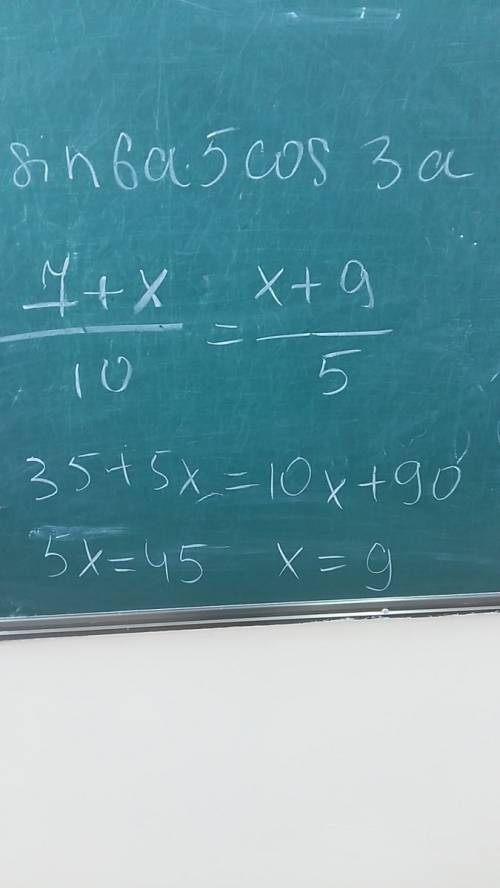 sin6a·5cos 3a
7+x / 10 = x+9 / 5
35+5x=10x+90
5x=45 x=9